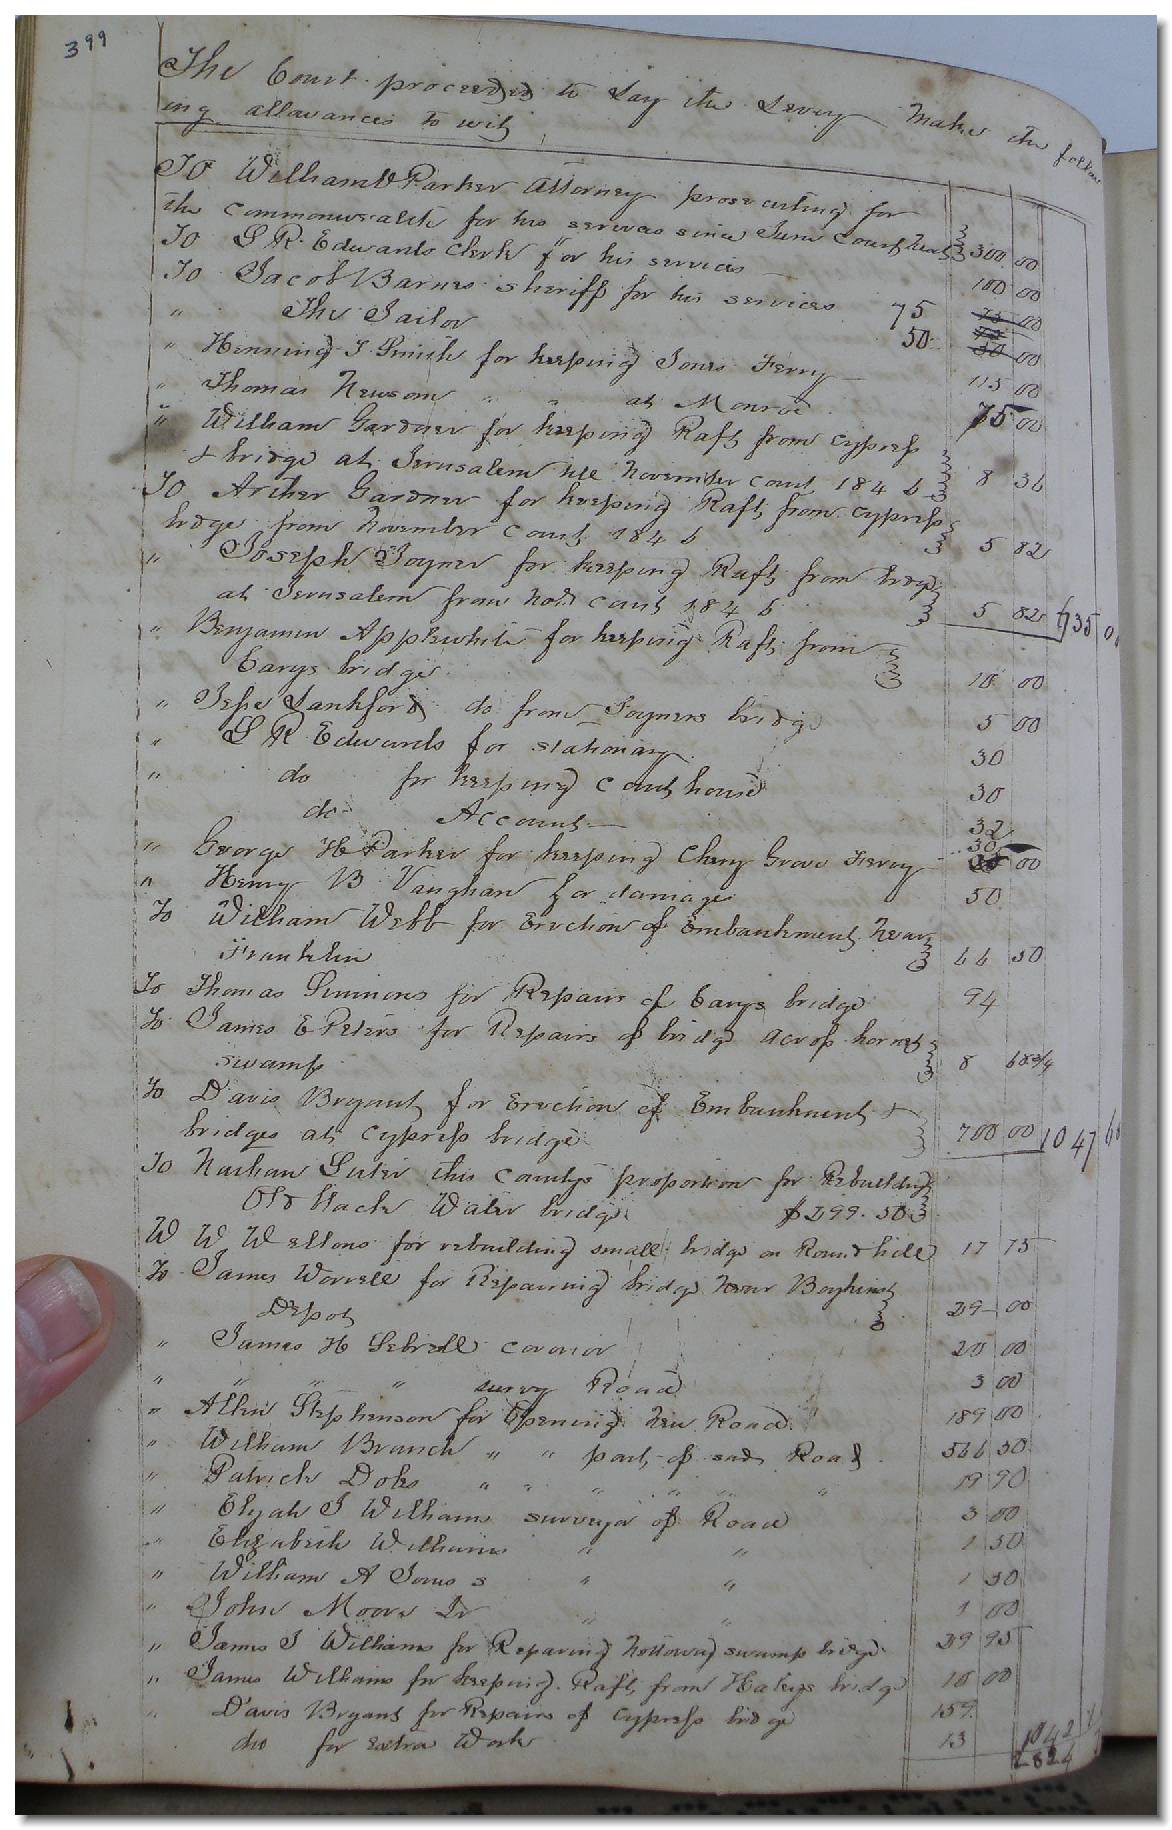 399
The Court proceeded to Lay the Levy Make the follow
ing allowances to wit
To William Parker Attorney prosecuting for
the commonwealth for his services since June Court 300 00
To L R Edwards Clerk for his services 100 00
To Jacob Barnes sheriff for his services 75 00
" The Jailor 50 00
" Henning T Smith for keeping Jones Ferry 115 00
" Thomas Newsom " " at Monroe 75 00
" William Gardner for keeping Raft from cypress
& bridge at Jerusalem till November Court 1846 8 36
To Archer Gardner for keeping Raft from cypress
bridge from November Court 1846 5 82
" Joseph Joyner for keeping Raft from bridge
at Jerusalem from Novr Court 1846 5 82 735 0
" Benjamin Applewhite for keeping Raft from
Carys bridge 10 00
" Jesse Lankford do from Joyners bridge 5 00
" L R Edwards for stationary 30
" do for keeping Court house 30
do Account 32
" George H Parker for keeping Cherry Grove Ferry 30 00
" Henry B Vaughan for damages 50
To William Webb for Erection of Embankment Near
Franklin 66 50
To Thomas Simmons for Repairs of Carys bridge 94
To James E Peters for Repairs of bridge across hornet
swamp 8 68 3/4
To Davis Bryant for Erection of Embankment &
bridges at Cypress bridge 700 00 1047 6
To Nathan Suter this Countys proportion for Rebuilding
Old black Water bridge $299.50
W W Wellons for rebuilding small bridge on Round hill 17 75
To James Worrell for Repairing bridge Near Boykins
Depot 29 00
" James H Sebrell coronor 20 00
" " " " survey Road 3 00
" Allen Stephenson for Opening New Road 189 00
" William Branch " " part of said Road 566 50
" Patrick Doles " " " " " " 19 90
" Elijah J Williams surveyor of Road 3 00
" Elizabeth Williams " " 1 50
" William A Jones " " 1 50
" John Moore Jr " " 1 00
" James J Williams for Reparing holloway swamp bridge 29 95
" James Williams for keeping Raft from Haleys bridge 10 00
" Davis Bryant for Repairs of Cypress bridge 159
do for Extra Work 13 1042
2824